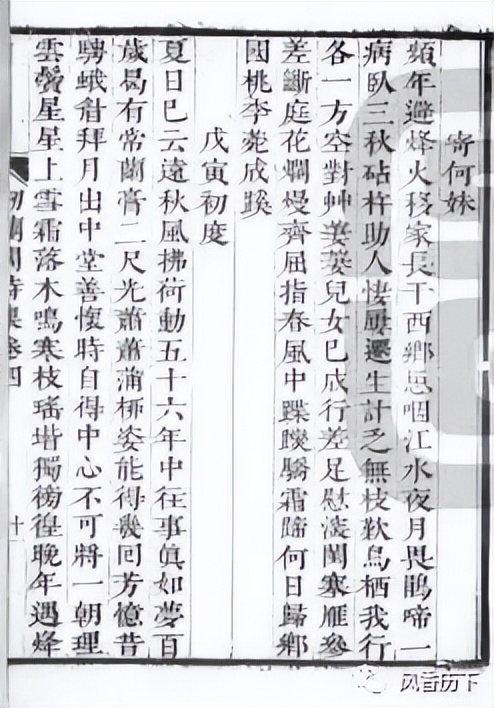 寄何妹
頻年避烽火移家長干西鄉思咽江水夜月畏鵑啼一
病臥三秋砧杵助人悽屢遷生計乏無枝歎烏栖我行
各一方空對艸萋萋兒女已成行差足慰淒閨寒雁參
差斷庭花爛熳齊屈指春風中蹀躞驕霜蹄何日歸鄉
國桃李菀成蹊
戊寅初度
夏日已云遠秋風拂荷動五十六年中往事眞如夢百
歲曷有常蘭膏二尺光蕭蕭蒲柳姿能得幾回芳憶昔
騁蛾眉拜月出中堂善懷時自得中心不可將一朝理
雲鬢星星上雪霜落木鳴寒枝瑤堦獨徬徨晚年遇烽
卷四 十
风音历下